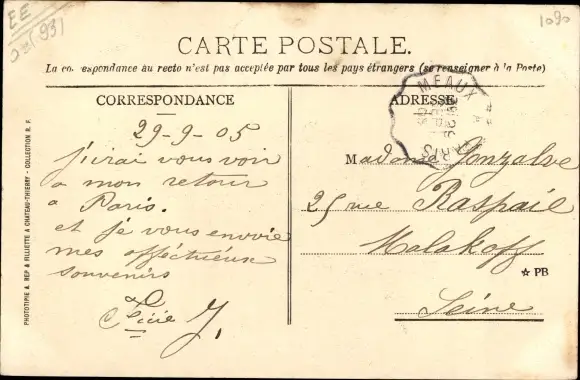 EE
(93)
1090
CARTE POSTALE.
La correspondance au recto n'est pas acceptée par tous les pays étrangers (se renseigner à la Poste)
CORRESPONDANCE
29-9-05
j'irai vous voir
a mon retour
a Paris.
et je vous envoie
mes afféctueux
souvenirs
J.
ADRESSE
MEAUX
PARIS
Madame Gonzalve
25 rue Raspail
Malakoff
☆ PB
Seine
PHOTOTYPIE A. REP & FILLIETTE, A CHATEAU-THIERRY - COLLECTION R. F.